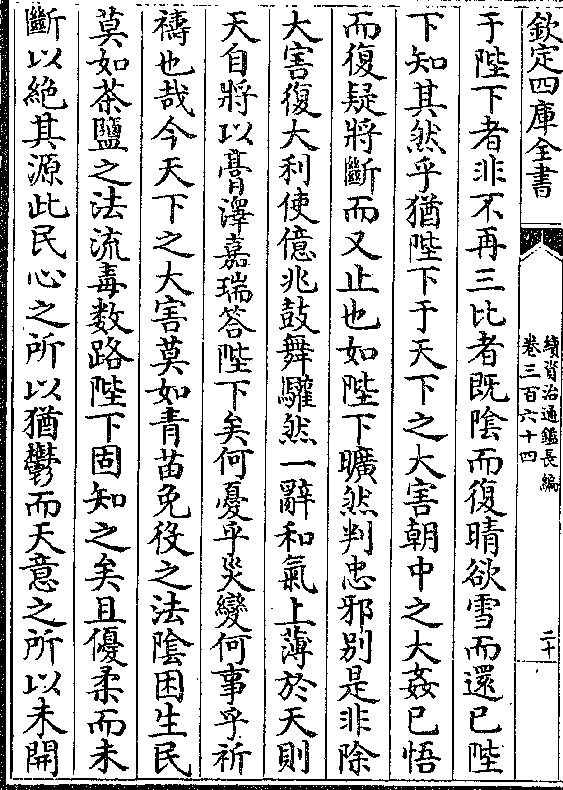 欽定四庫全書
續資治通鑑長編
卷三百六十四
二十
于陛下者非不再三比者既陰而復晴欲雪而還已陛
下知其然乎猶陛下于天下之大害朝中之大姦已悟
而復疑將斷而又止也如陛下曠然判忠邪别是非除
大害復大利使億兆鼓舞驩然一辭和氣上薄於天則
天自將以膏澤嘉瑞答陛下矣何憂乎災變何事乎祈
禱也哉今天下之大害莫如青苗免役之法陰困生民
莫如茶鹽之法流毒数路陛下固知之矣且優柔而未
斷以絶其源此民心之所以猶鬱而天意之所以未開